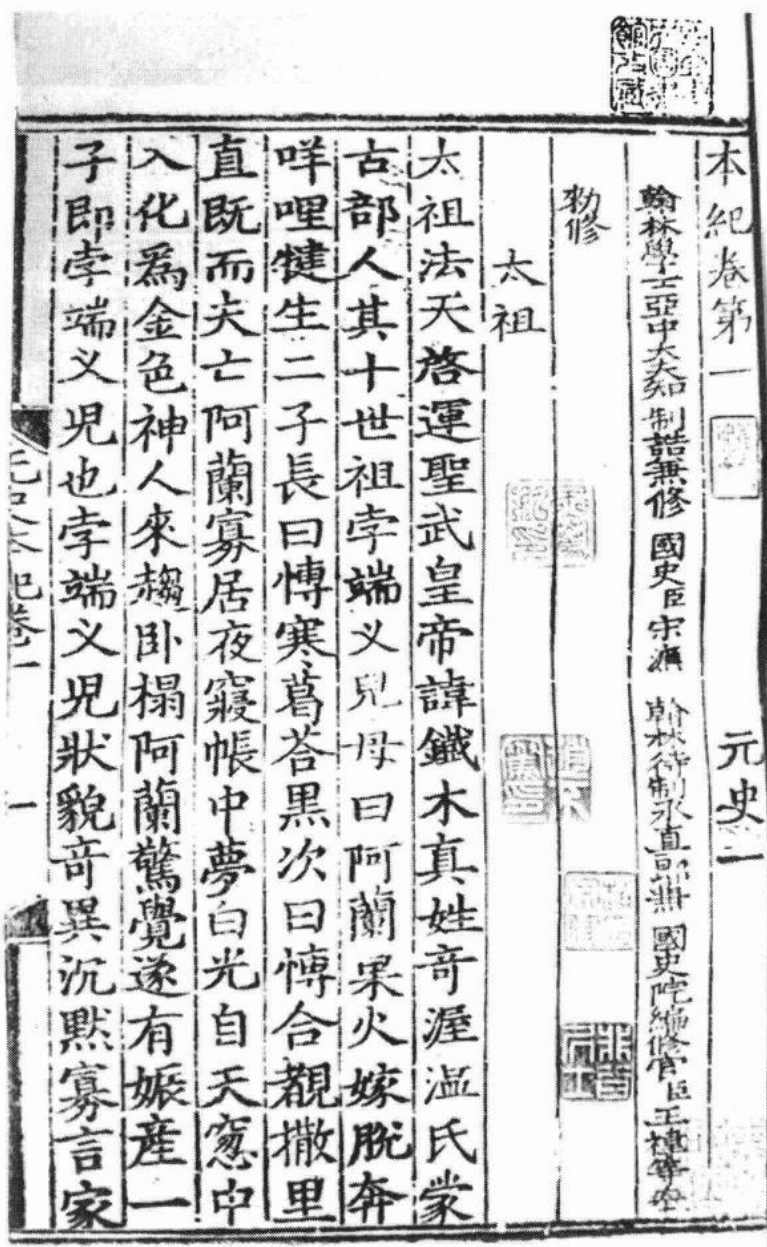 本紀卷第一 元史一
翰林學士亞中大夫知制誥兼修國史臣宋濂 翰林待制承直郎兼國史院編修官臣王禕等奉
勑修
太祖
太祖法天啓運聖武皇帝諱鐵木真姓奇渥温氏蒙
古部人其十世祖孛端义兒母曰阿蘭果火嫁脫奔
咩哩犍生二子長曰愽寒葛荅黑次曰愽合覩撒里
直旣而夫亡阿蘭寡居夜寢帳中夢白光自天窓中
入化爲金色神人來趨卧榻阿蘭驚覺遂有娠産一
子即孛端义児也孛端义児狀貌竒異沉黙寡言家
元史本紀卷一 一